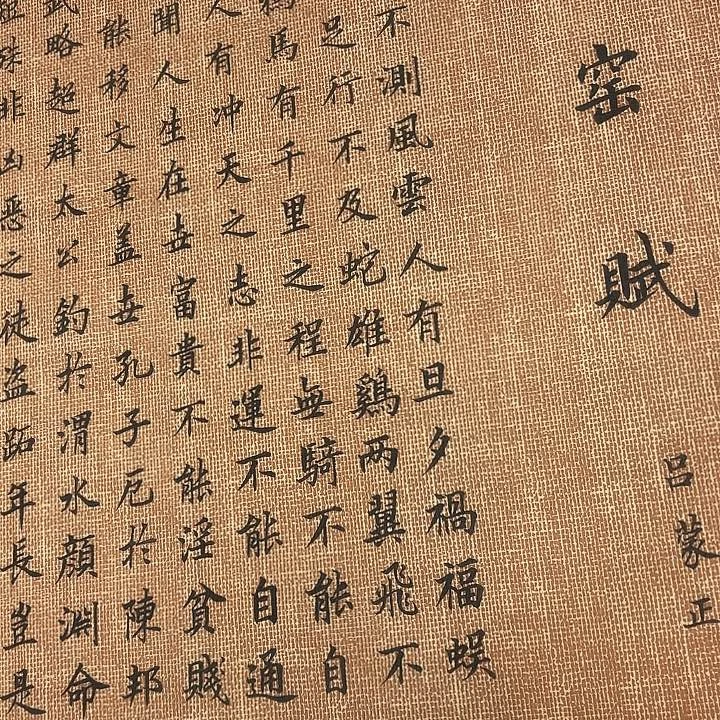 窑賦
吕蒙正
不測風雲人有旦夕禍福蜈
足行不及蛇雄鷄两翼飛不
馬有千里之程無騎不能自
人有冲天之志非運不能自通
聞人生在世富貴不能淫貧賤
能移文章盖世孔子厄於陳邦
武略超群太公釣於渭水顔淵命
殊非凶惡之徒盗跖年長豈是